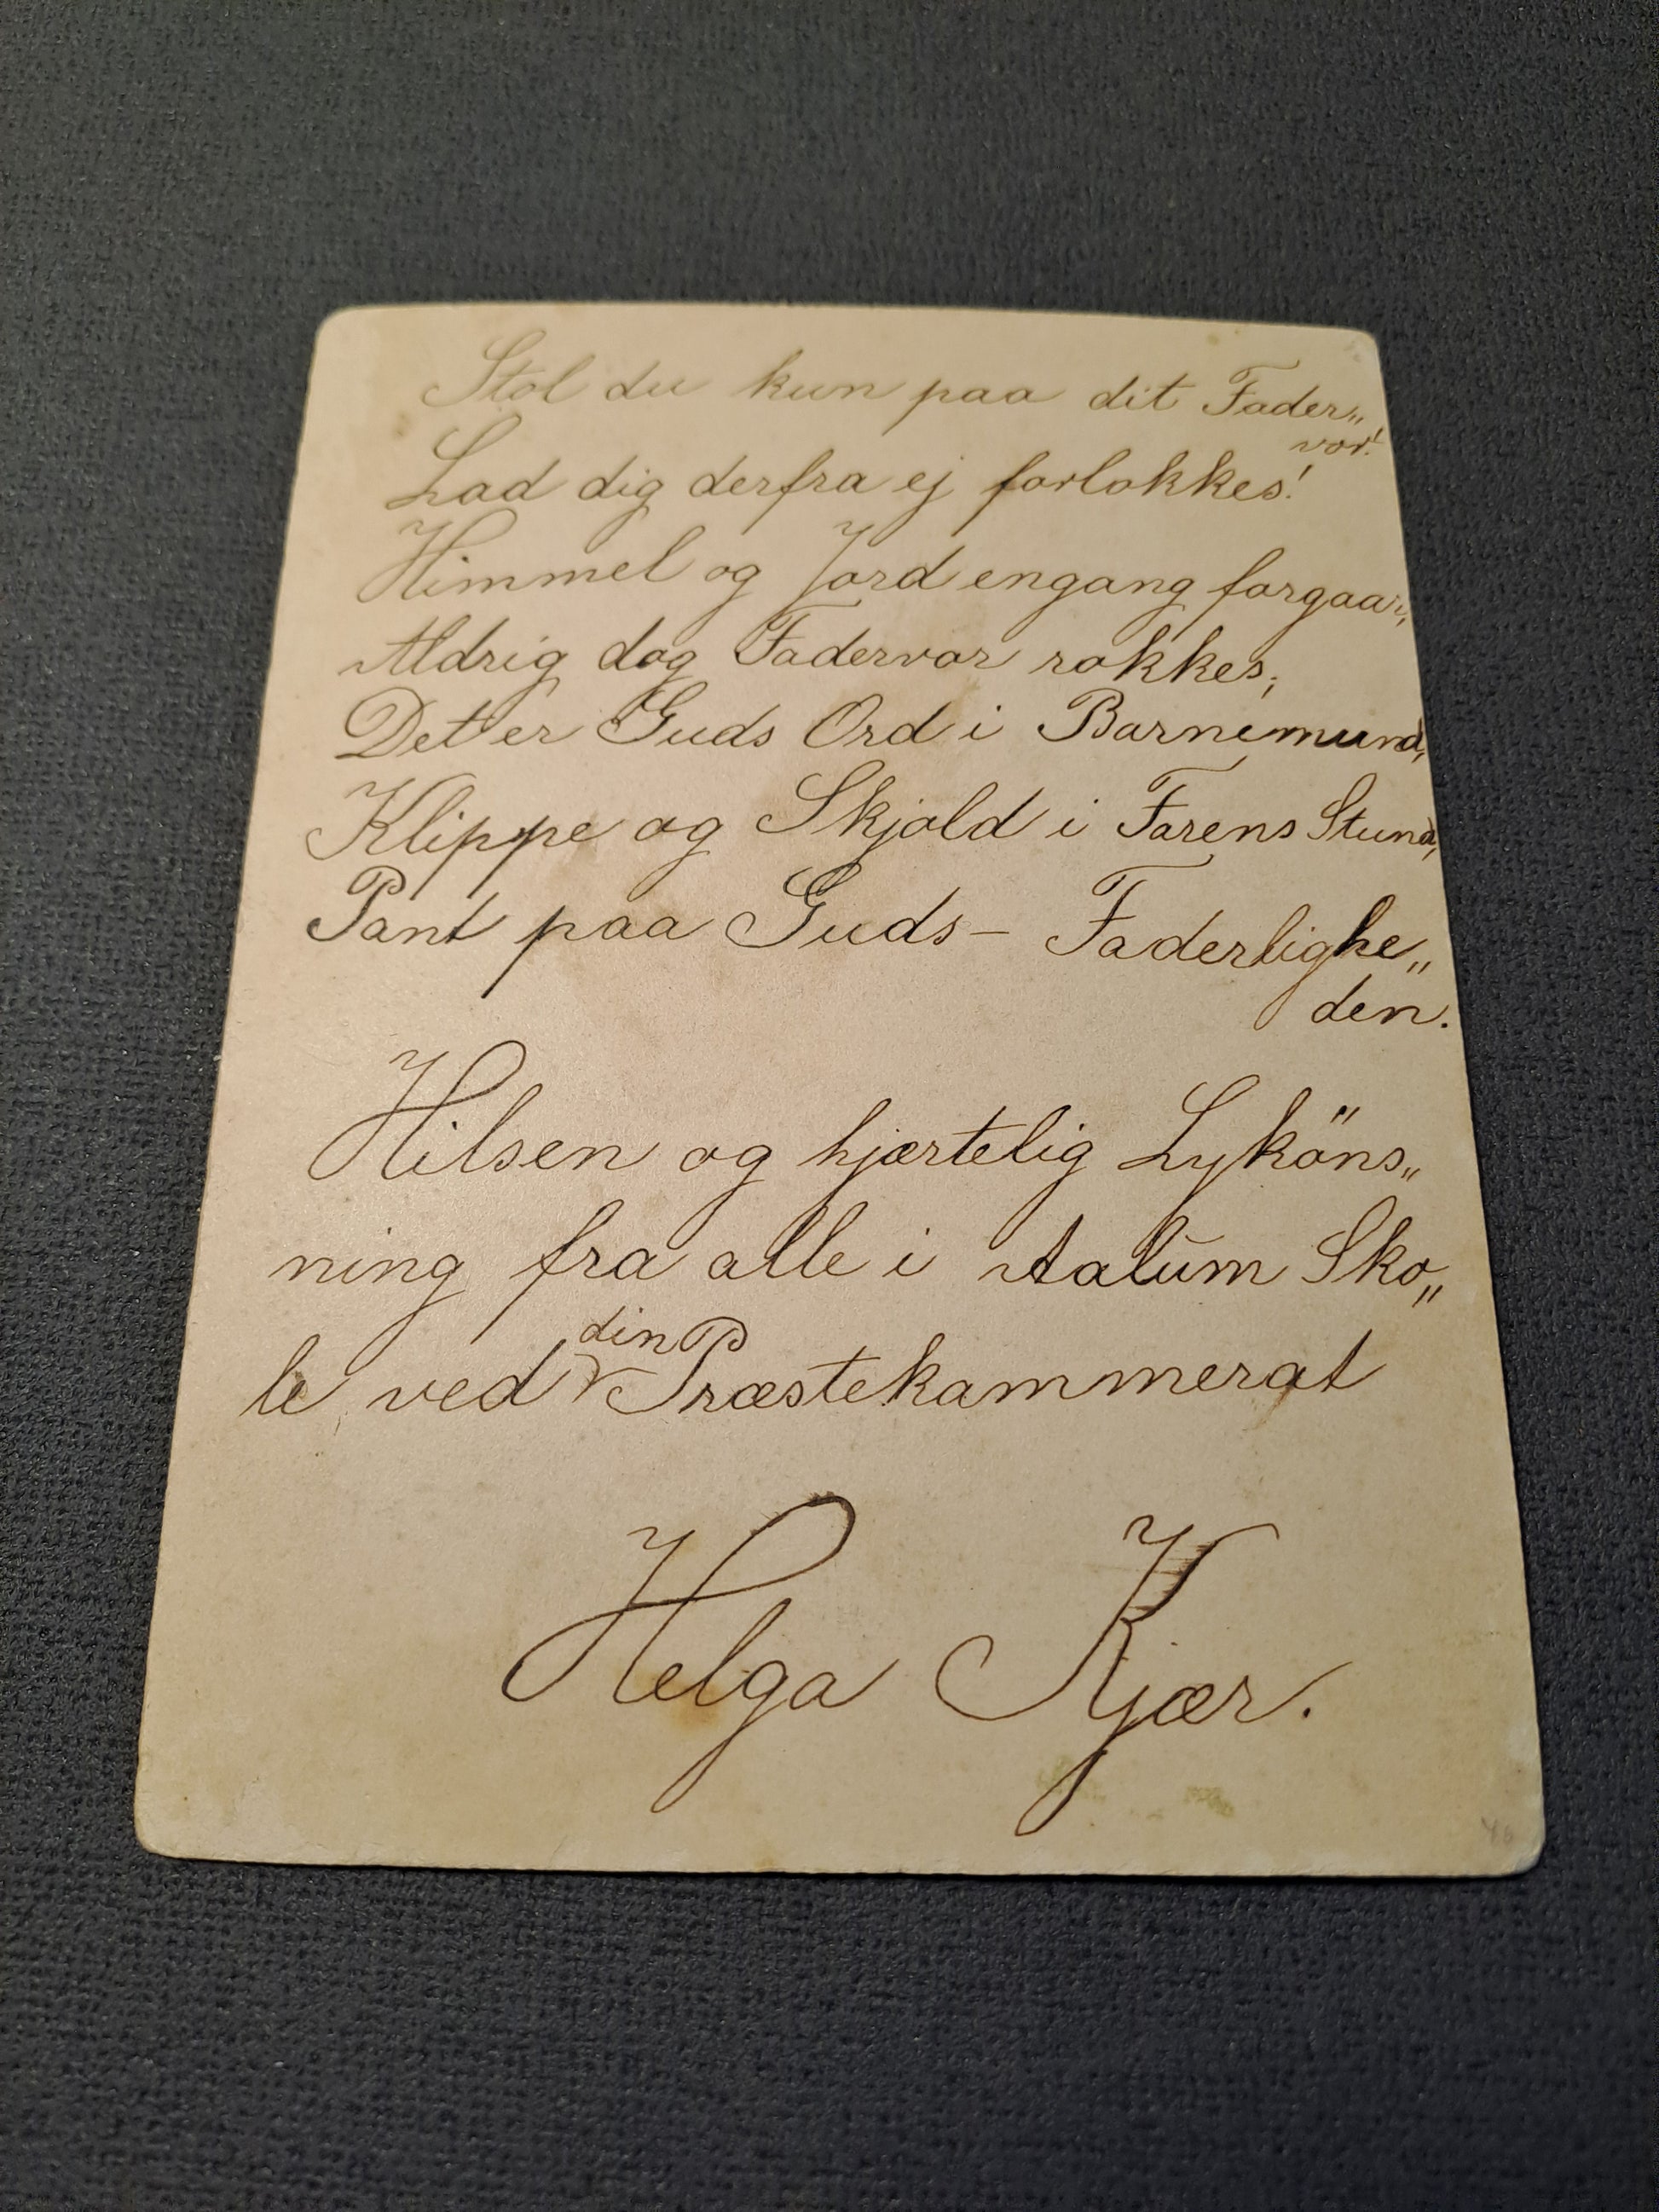 Stol du kun paa dit Fader„
vor!
Lad dig derfra ej forlokkes!
Himmel og Jord engang forgaar,
Aldrig dog Fadervor rokkes;
Det er Guds Ord i Barnemund,
Klippe og Skjold i Farens Stund,
Pant paa Guds- Faderlighe„
den.
Hilsen og hjærtelig Lyköns„
ning fra alle i Aalum Sko„
din
le ved Præstekammerat
Helga Kjær.